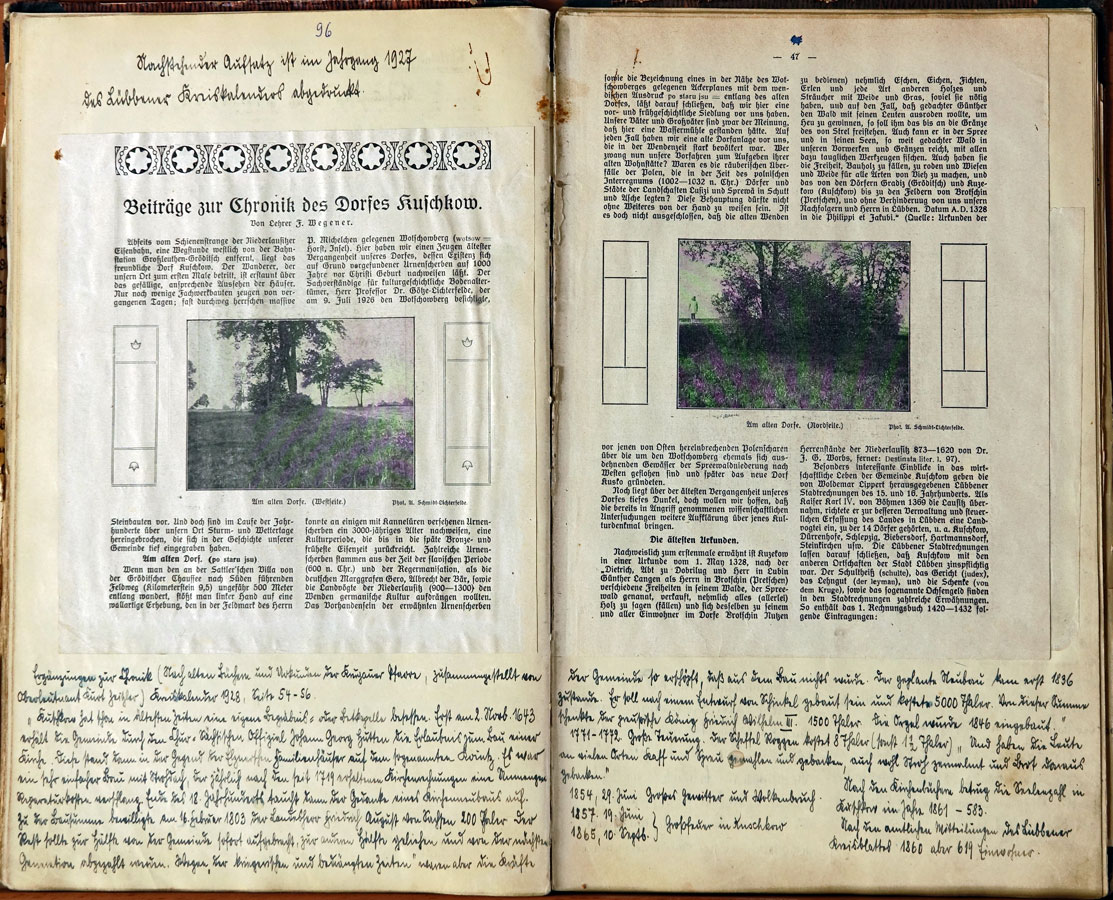 96
Nachstehender Aufsatz ist im Jahrgang 1927
des Lübbener Kreiskalenders abgedruckt.
Beiträge zur Chronik des Dorfes Kuschkow.
Von Lehrer J. Wegener.
Abseits vom Schienenstrange der Niederlausitzer
Eisenbahn, eine Wegstunde westlich von der Bahn-
station Großleuthen-Gröditsch entfernt, liegt das
freundliche Dorf Kuschkow. Der Wanderer, der
unsern Ort zum ersten Male betritt, ist erstaunt über
das gefällige, ansprechende Aussehen der Häuser.
Nur noch wenige Fachwerkbauten zeugen von ver-
gangenen Tagen; fast durchweg herrschen massive
P. Michelchen gelegenen Wotschowberg (wotsow =
Horst, Insel). Hier haben wir einen Zeugen ältester
Vergangenheit unseres Dorfes, dessen Existenz sich
auf Grund vorgefundener Urnenscherben auf 1000
Jahre vor Christi Geburt nachweisen läßt. Der
Sachverständige für kulturgeschichtliche Bodenalter-
tümer, Herr Professor Dr. Götze-Lichterfelde, der
am 9. Juli 1926 den Wotschowberg besichtigte,
Am alten Dorfe. (Westseite.)
Phot. A. Schmidt-Lichterfelde.
Steinbauten vor. Und doch sind im Laufe der Jahr-
hunderte über unsern Ort Sturm- und Wettertage
hereingebrochen, die sich in der Geschichte unserer
Gemeinde tief eingegraben haben.
Am alten Dorf. (po starz jsu)
Wenn man den an der Sattler'schen Villa von
der Gröditscher Chaussee nach Süden führenden
Feldweg (Kilometerstein 9,5) ungefähr 500 Meter
entlang wandert, stößt man linker Hand auf eine
wallartige Erhebung, den in der Feldmark des Herrn
konnte an einigen mit Kannelüren versehenen Urnen-
scherben ein 3000-jähriges Alter nachweisen, eine
Kulturperiode, die bis in die späte Bronze- und
früheste Eisenzeit zurückreicht. Zahlreiche Urnen-
scherben stammen aus der Zeit der slavischen Periode
(600 n. Chr.) und der Regermanisation, als die
deutschen Marggrafen Gero, Albrecht der Bär, sowie
die Landvögte der Niederlausitz (900—1300) den
Wenden germanische Kultur aufdrängen wollten.
Das Vorhandensein der erwähnten Urnenscherben
Ergänzungen zur Chronik (Nach alten Büchern und Urkunden der Krugauer Pfarre, zusammengestellt von
Oberleutnant Kurt Zeisler) Kreiskalender 1928, Seite 54-56
„Kuschkow hat schon in ältesten Zeiten eine eigene Begräbnis- oder Betkapelle besessen. Erst am 2. Novb. 1643
erhält die Gemeinde durch den Chur-Sächsischen Offizial Johann Georg Hütten die Erlaubnis zum Bau einer
Kirche. Diese stand dann in der Gegend der Familienhäuser auf dem sogenannten Es war
ein sehr einfacher Bau mit Strohdach, der jährlich nach den seit 1719 erhaltenen Kirchenrechnungen eine Unmenge
Reparaturkosten verschlang. Ende des 18. Jahrhunderts taucht dann der Gedanke eines Kirchenneubaus auf.
Zu der Bausumme bewilligte am 4. Februar 1803 der Landesherr Friedrich August von Sachsen 200 Taler. Der
Rest sollte zur Hälfte von der Gemeinde sofort aufgebracht, zur andern Hälfte geliehen und von der nächsten
Generation abgezahlt werden. Wegen „der kriegerischen und bedrängten Zeiten" waren aber die Kräfte
— 47 —
sowie die Bezeichnung eines in der Nähe des Wot-
schowberges gelegenen Ackerplanes mit dem wen-
dischen Ausdruck po starz jsu = entlang des alten
Dorfes, läßt darauf schließen, daß wir hier eine
vor- und frühgeschichtliche Siedlung vor uns haben.
Unsere Väter und Großväter sind zwar der Meinung,
daß hier eine Wassermühle gestanden hätte. Auf
jeden Fall haben wir eine alte Dorfanlage vor uns,
die in der Wendenzeit stark bevölkert war. Wer
zwang nun unsere Vorfahren zum Aufgeben ihrer
alten Wohnstätte? Waren es die räuberischen Über-
fälle der Polen, die in der Zeit des polnischen
Interregnums (1002—1032 n. Chr.) Dörfer und
Städte der Landschaften Lusizi und Sprewa in Schutt
und Asche legten? Diese Behauptung dürfte nicht
ohne Weiteres von der Hand zu weisen sein. Ist
es doch nicht ausgeschlossen, daß die alten Wenden
zu bedienen) nehmlich Eschen, Eichen, Fichten,
Erlen und jede Art anderen Holzes und
Sträucher mit Weide und Gras, soviel sie nötig
haben, und auf den Fall, daß gedachter Günther
den Wald mit seinen Leuten ausroden wollte, um
Heu zu gewinnen, so soll ihm das bis an die Gränze
des von Strel freistehen. Auch kann er in der Spree
und in seinen Seen, so weit gedachter Wald in
unseren Vorwerken und Gränzen reicht, mit allen
dazu tauglichen Werkzeugen fischen. Auch haben sie
die Freiheit, Bauholz zu fällen, zu roden und Wiesen
und Weide für alle Arten von Vieh zu machen, und
das von den Dörfern Grabz (Gröditsch) und Kuze-
kow (Kuschkow) bis zu den Feldern von Brotschin
(Pretschen), und ohne Verhinderung von uns unsern
Nachfolgern und Herren in Lübben. Datum A. D. 1328
in die Philippi et Jakubi." (Quelle: Urkunden der
Am alten Dorfe. (Nordseite.)
Phot. A. Schmidt-Lichterfelde.
vor jenen von Osten hereinbrechenden Polenscharen
über die um den Wotschowberg ehemals sich aus-
dehnenden Gewässer der Spreewaldniederung nach
Westen geflohen sind und später das neue Dorf
Kusko gründeten.
Noch liegt über der ältesten Vergangenheit unseres
Dorfes tiefes Dunkel, doch wollen wir hoffen, daß
die bereits in Angriff genommenen wissenschaftlichen
Untersuchungen weitere Aufklärung über jenes Kul-
turdenkmal bringen.
Die ältesten Urkunden.
Nachweislich zum erstenmale erwähnt ist Kuzekow
in einer Urkunde vom 1. May 1328, nach der
„Dietrich, Abt zu Dobrilug und Herr in Lubin
Günther Langen als Herrn in Brotschin (Pretschen)
verschiedene Freiheiten in seinem Walde, der Spree-
wald genanat, verkauft, nehmlich alles (allerlei)
Holz zu sagen (fällen) und sich desselben zu seinem
und aller Einwohner im Dorfe Brotschin Nutzen
Herrenstände der Niederlausitz 873—1620 von Dr.
J. G. Worbs, ferner: Destinata liter. I. 97).
Besonders interessante Einblicke in das wirt-
schaftliche Leben der Gemeinde Kuschkow geben die
von Woldemar Lippert herausgegebenen Lübbener
Stadtrechnungen des 15. und 16. Jahrhunderts. Als
Kaiser Karl IV. von Böhmen 1369 die Lausitz über-
nahm, richtete er zur besseren Verwaltung und steuer-
lichen Erfassung des Landes in Lübben eine Land-
vogtei ein, zu der 14 Dörfer gehörten, u. a. Kuschkow,
Dürrenhofe, Schlepzig, Biebersdorf, Hartmannsdorf,
Steinkirchen usw. Die Lübbener Stadtrechnungen
lassen darauf schließen, daß Kuschkow mit den
anderen Ortschaften der Stadt Lübben zinspflichtig
war. Der Schultheiß (schulte), das Gericht (judex),
das Lehngut (der leyman), und die Schenke (von
dem Kruge), sowie das sogenannte Ochsengeld finden
in den Stadtrechnungen zahlreiche Erwähnungen.
So enthält das 1. Rechnungsbuch 1420—1432 fol-
gende Eintragungen:
der Gemeinde so erschöpft, daß aus dem Bau nichts wurde. Der geplante Neubau kam erst 1836
zustande. Er soll nach einem Entwurf von Schinkel gebaut sein und kostete 5000 Thaler. Von dieser Summe
schenkte der preußische König Friedrich Wilhelm III. 1500 Thaler. Die Orgel wurde 1846 eingebaut."
1771-1772. Große Teuerung. Der Scheffel Roggen kostet 8 Thaler (sonst 1½ Thaler) „Und haben die Leute
an vielen Orten Kaff und Spreu gemahlen und gebacken, auch wohl Stroh zermalmt und Brot daraus
gebacken."
1854, 29. Juni Großes Gewitter und Wolkenbruch.
1857. 19. Juni
1865, 10. Septb. } Großfeuer in Kuschkow
Nach den Kirchenbüchern betrug die Seelenzahl in
Kuschkow im Jahre 1861 – 583.
Nach den amtlichen Mitteilungen des Lübbener
Kreisblattes 1860 aber 619 Einwohner.